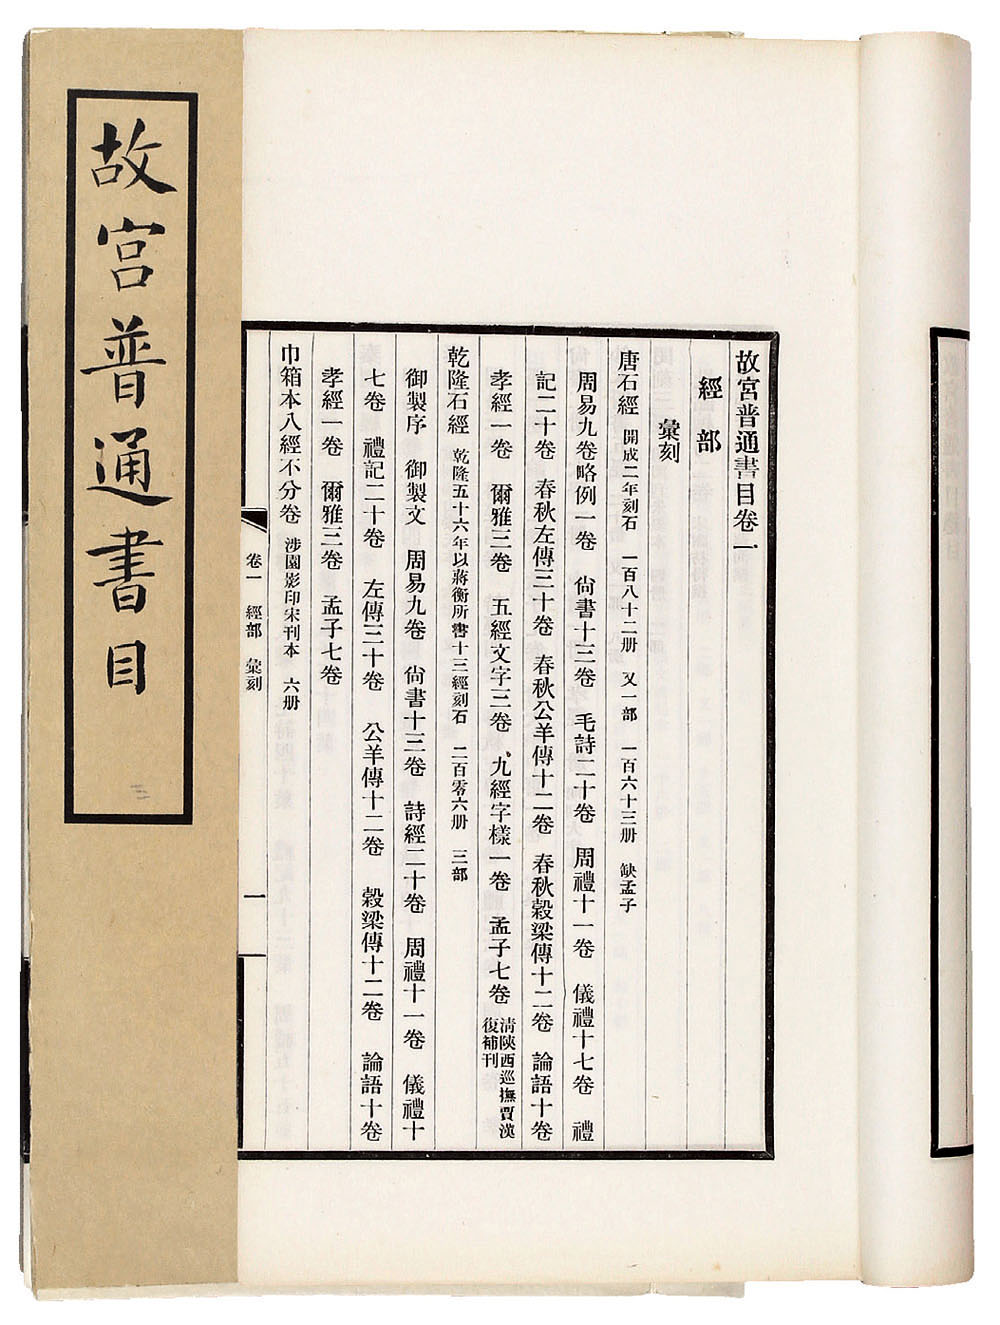 故宮普通書目
故宮普通書目卷一
經部
彙刻
唐石經 開成二年刻石 一百八十二册 又一部 一百六十三册 缺孟子
周易九卷略例一卷 尙書十三卷 毛詩二十卷 周禮十一卷 儀禮十七卷 禮
記二十卷 春秋左傳三十卷 春秋公羊傳十二卷 春秋穀梁傳十二卷 論語十卷
孝經一卷 爾雅三卷 五經文字三卷 、九經字樣一卷 孟子七卷 清陝西巡撫賈漢
復補刊
乾隆石經 乾隆五十六年以蔣衡所書十三經刻石 二百零六册 三部
御製序 御製文 周易九卷 尙書十三卷 詩經二十卷 周禮十一卷 儀禮十
七卷 禮記二十卷 左傳三十卷 公羊傳十二卷 穀梁傳十二卷 論語十卷
孝經一卷 爾雅三卷 孟子七卷
巾箱本八經不分卷 涉園影印宋刊本 六册
卷一 經部 彙刻 一